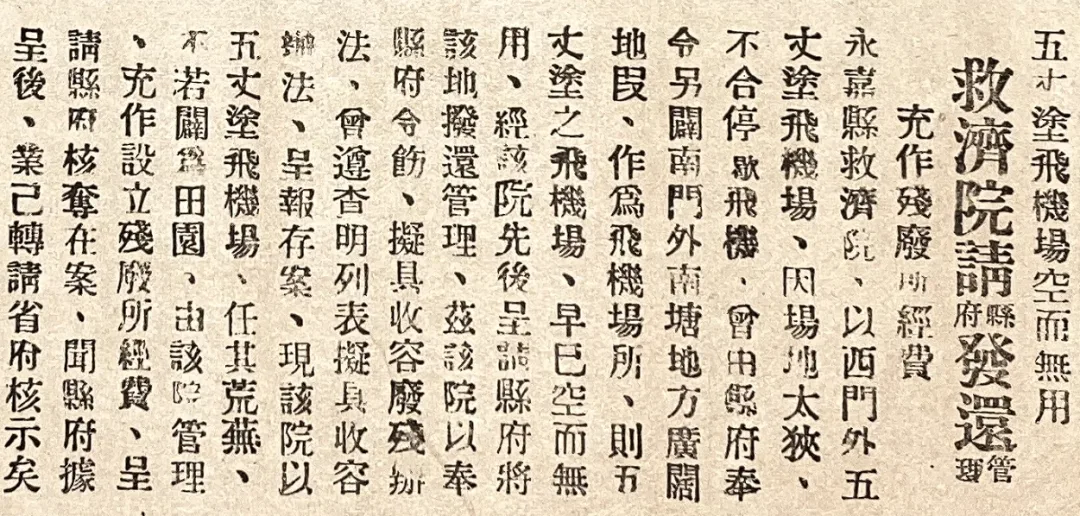 五丈塗飛機場空而無用
救濟院請縣府發還管理
充作殘廢所經費
永嘉縣救濟院、以西門外五
丈塗飛機場、因場地太狹、
不合停歇飛機、曾由縣府奉
令另闢南門外南塘地方廣闊
地段、作爲飛機場所、則五
丈塗之飛機場、早已空而無
用、經該院先後呈請縣府將
該地撥還管理、茲該院以奉
縣府令飭、擬具收容廢殘辦
法、曾遵查明列表擬具收容
辦法、呈報存案、現該院以
五丈塗飛機場、任其荒蕪、
不若闢爲田園、由該院管理
、充作設立殘廢所經費、呈
請縣府核奪在案、聞縣府據
呈後、業已轉請省府核示矣